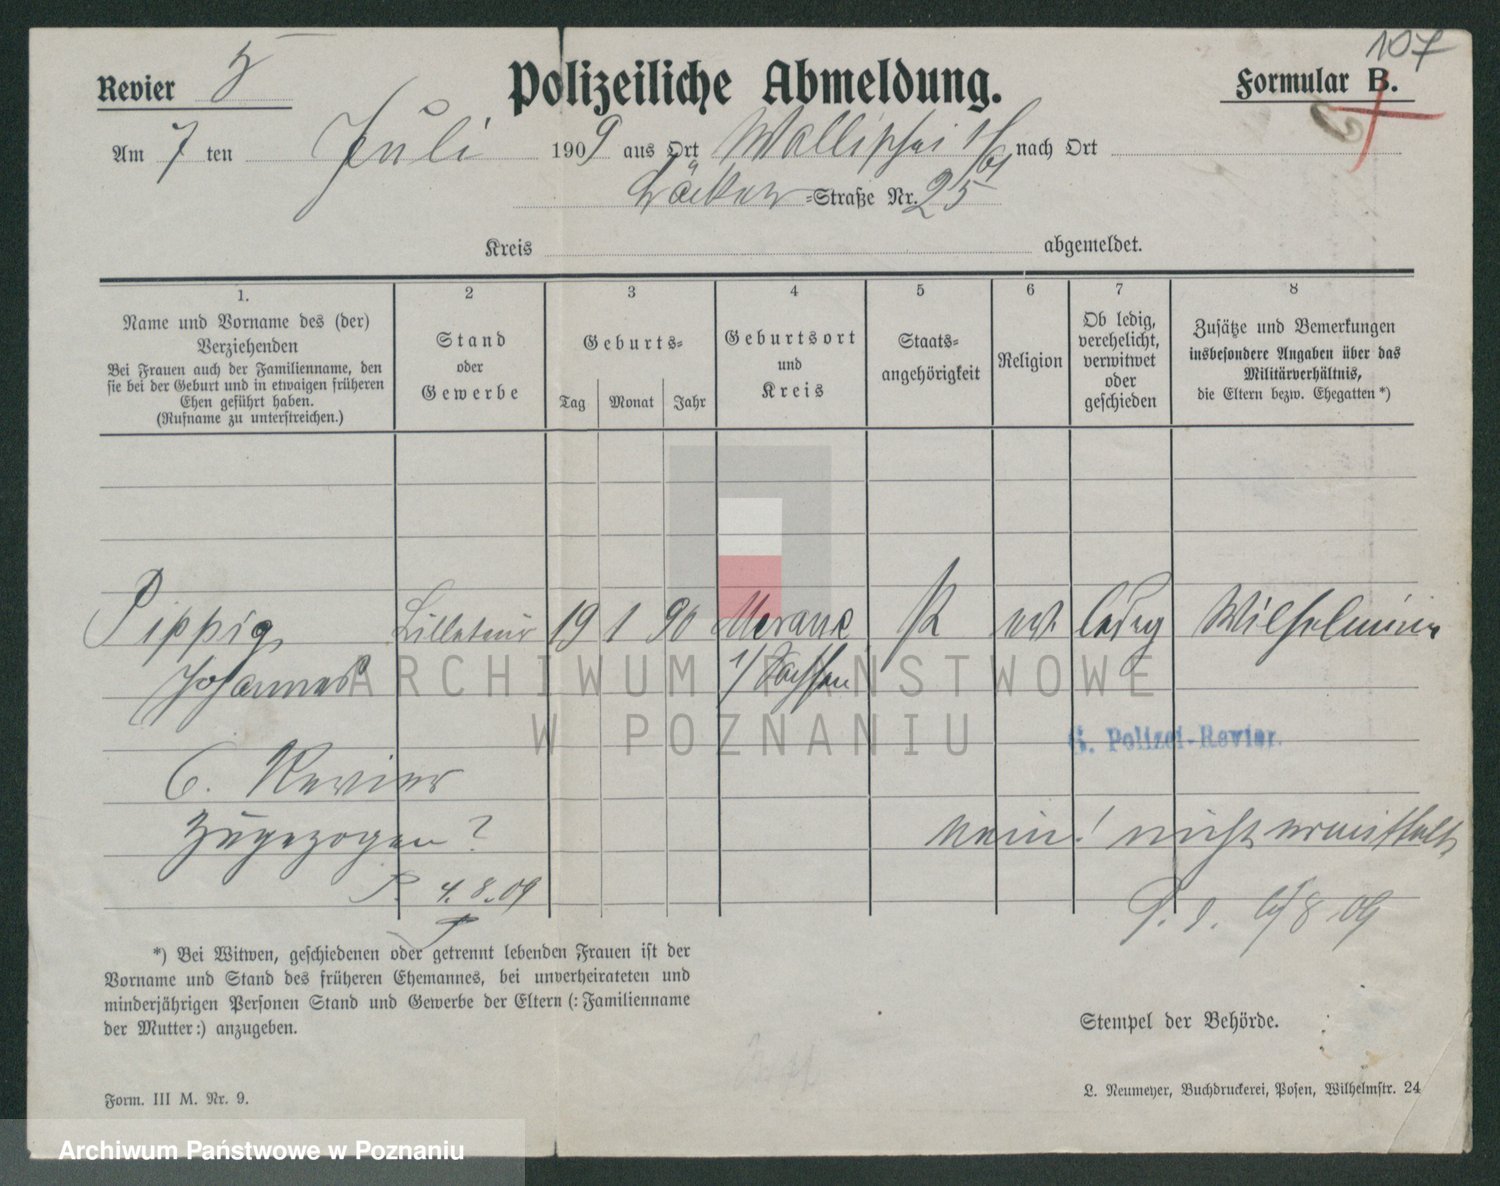 107
Revier 5
Polizeiliche Abmeldung.
Formular B.
Am 7 ten Juli 1909 aus Ort Wallischei nach Ort
Bäcker=Straße Nr. 25
Kreis abgemeldet.
1.
Name und Vorname des (der)
Verziehenden
Bei Frauen auch der Familienname, den
sie bei der Geburt und in etwaigen früheren
Ehen geführt haben.
(Rufname zu unterstreichen.)
2
Stand
oder
Gewerbe
3
Geburts=
Tag Monat Jahr
4
Geburtsort
und
Kreis
5
Staats=
angehörigkeit
6
Religion
7
Ob ledig,
verehelicht,
verwitwet
oder
geschieden
8
Zusätze und Bemerkungen
insbesondere Angaben über das
Militärverhältnis,
die Eltern bezw. Ehegatten *)
Pippig, 19 1 90 Merane ledig Wilhelmine
Johannes i/Sachsen
6. Polizei-Revier.
6. Revier
Zugezogen?
nein! nicht ermittelt
P. 4.8.09
P. d. 6/8 09
*) Bei Witwen, geschiedenen oder getrennt lebenden Frauen ist der
Vorname und Stand des früheren Ehemannes, bei unverheirateten und
minderjährigen Personen Stand und Gewerbe der Eltern (: Familienname
der Mutter:) anzugeben.
Stempel der Behörde.
Form. III M. Nr. 9.
L. Neumeyer, Buchdruckerei, Posen, Wilhelmstr. 24
ARCHIWUM PAŃSTWOWE
W POZNANIU
Archiwum Państwowe w Poznaniu